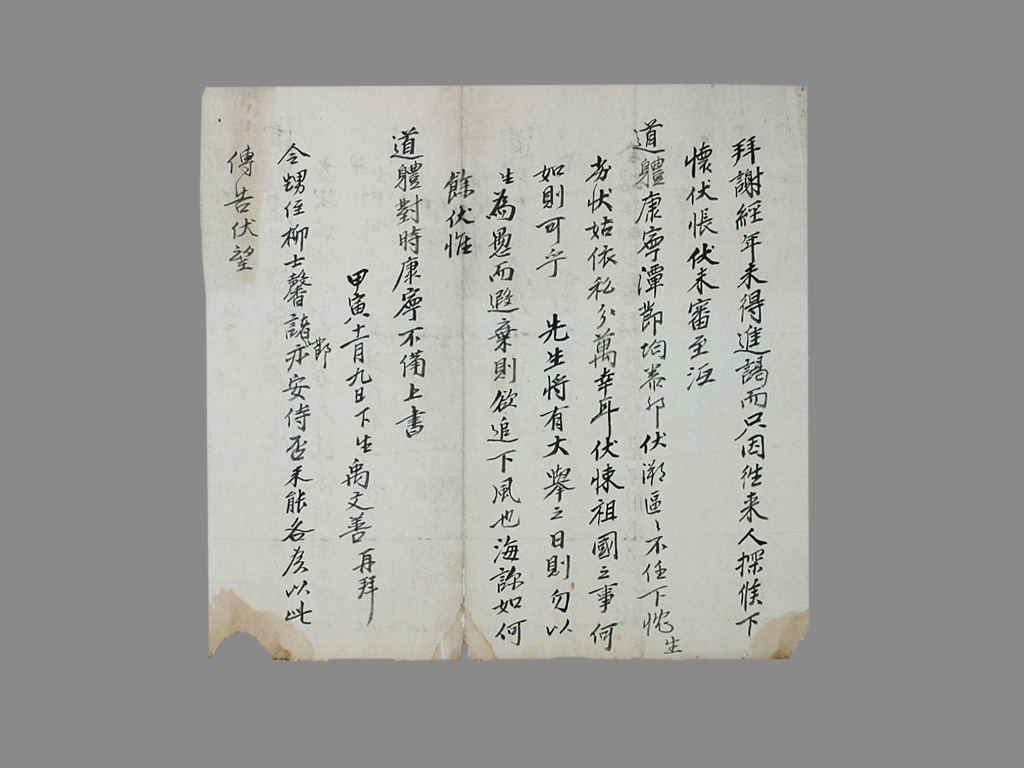 拜謝經年未得進謁而只因往来人探候下
懷伏悵伏未審至沍
道體康寧潭節均 伏溯區〻不任下忱生
劣狀姑依私分萬幸耳伏悚祖國之事何
如則可乎 先生將有大擧之日則勿以
生為愚而遐棄則欲追下風也海諒如何
餘伏惟
道體對時康寧不備上書
甲寅十一月九日下生禹文善再拜
令甥侄柳士馨諸節亦安侍否未能各候以此
傳告伏望